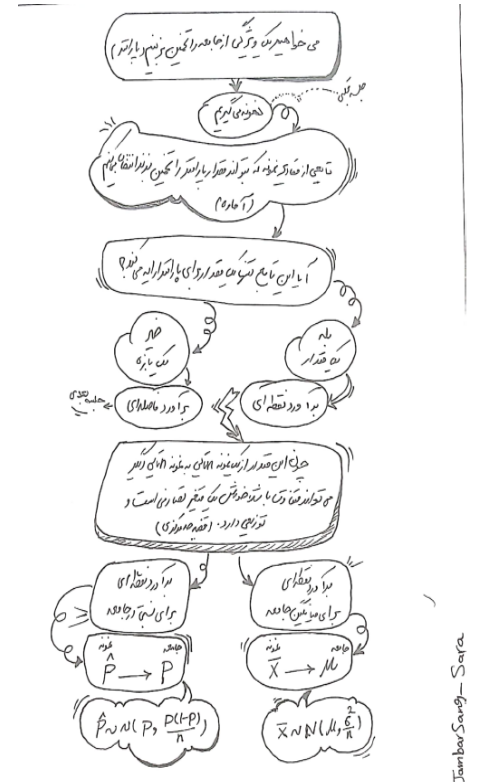 می خواهیم یک ویژگی از جامعه را تخمین بزنیم (پارامتر)
جلسه قبلی
نمونه می گیریم
تابعی از مقادیر نمونه که بتواند مقدار پارامتر را تخمین بزند انتخاب می کنیم
(آماره)
آیا این تابع تنها یک مقدار برای پارامتر ارایه می کند؟
بله
یک مقدار
خیر
یک بازه
برآورد نقطه ای
برآورد فاصله ای
جلسه بعدی
چون این مقدار از یک نمونه nتایی به نمونه nتایی دیگر
می تواند متفاوت باشد خودش یک متغیر تصادفی است و
توزیعی دارد. (قضیه حد مرکزی)
برآورد نقطه ای
برای میانگین جامعه
برآورد نقطه ای
برای نسبت در جامعه
نمونه جامعه
X̄ → μ
نمونه جامعه
P̂ → P
X̄ ~ N(μ, σ²/n)
P̂ ~ N(P, P(1-P)/n)
JambarSang_Sara